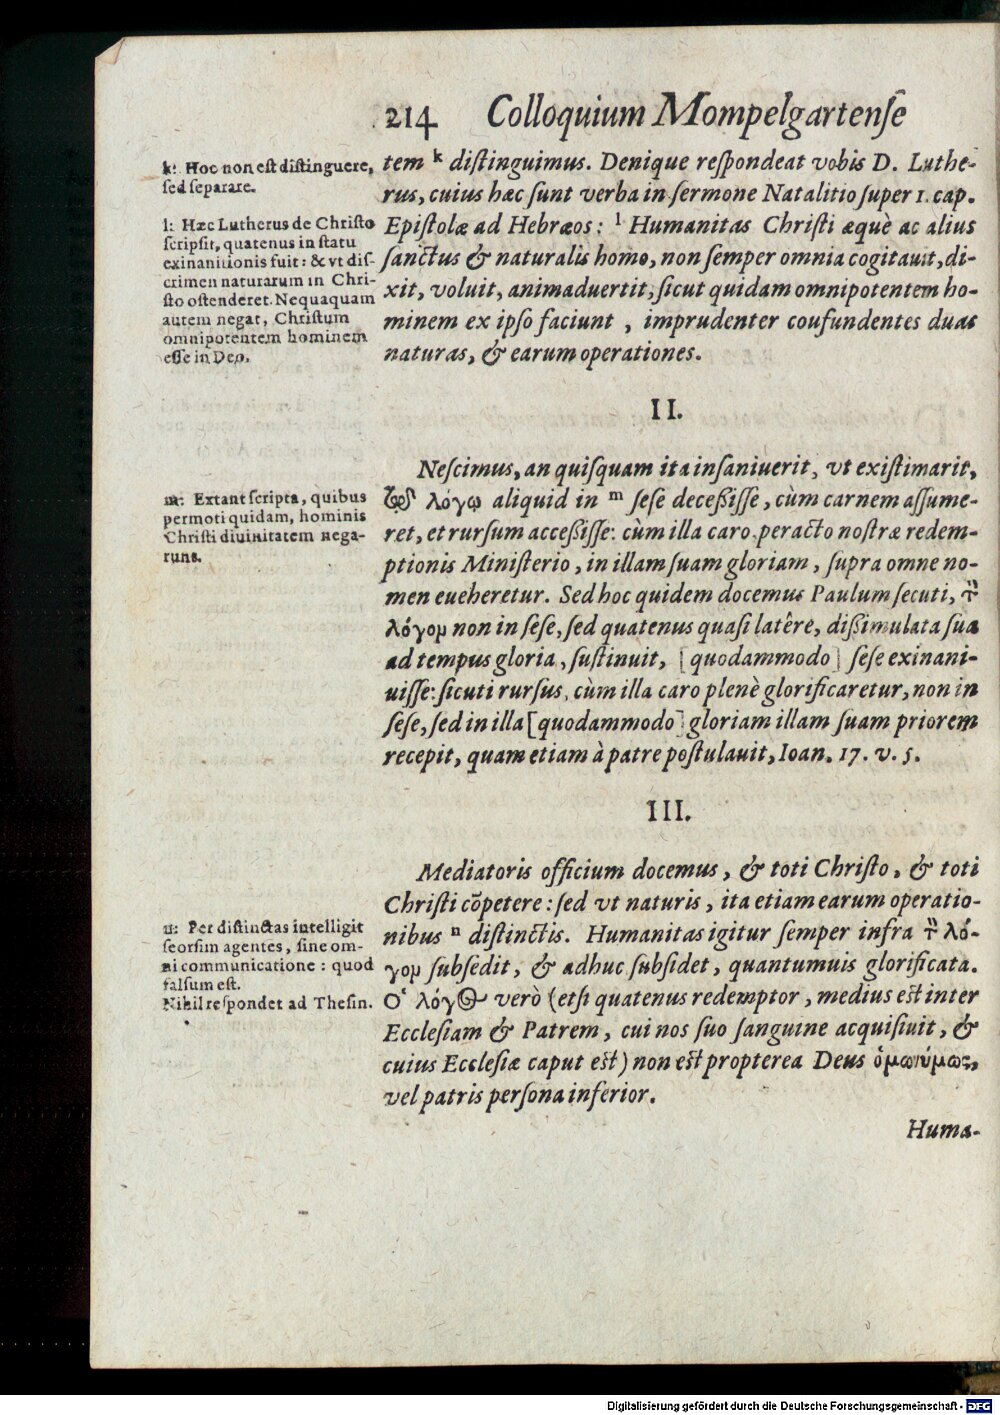 214 Colloquium Mompelgartenſe
k: Hoc non eſt diſtinguere,
ſed ſeparare.
l: Hæc Lutherus de Chriſto
ſcripſit, quatenus in ſtatu
exinanitionis fuit: & vt diſ-
crimen naturarum in Chri-
ſto oſtenderet. Nequaquam
autem negat, Chriſtum
omnipotentem hominem
eſſe in Deo.
tem k diſtinguimus. Denique reſpondeat vobis D. Luthe-
rus, cuius hæc ſunt verba in ſermone Natalitio ſuper 1. cap.
Epiſtolæ ad Hebræos: l Humanitas Chriſti æquè ac alius
ſanctus & naturalis homo, non ſemper omnia cogitauit, di-
xit, voluit, animaduertit, ſicut quidam omnipotentem ho-
minem ex ipſo faciunt, imprudenter coufundentes duas
naturas, & earum operationes.
II.
m: Extant ſcripta, quibus
permoti quidam, hominis
Chriſti diuinitatem nega-
runt.
Neſcimus, an quiſquam ita inſaniuerit, vt exiſtimarit,
λόγῳ aliquid in m ſeſe deceßiſſe, cùm carnem aſſume-
ret, et rurſum acceßiſſe: cùm illa caro peracto noſtræ redem-
ptionis Miniſterio, in illam ſuam gloriam, ſupra omne no-
men eueheretur. Sed hoc quidem docemus Paulum ſecuti, τὸν
λόγομ non in ſeſe, ſed quatenus quaſi latêre, dißimulata ſua
ad tempus gloria, ſuſtinuit, [quodammodo] ſeſe exinani-
uiſſe: ſicuti rurſus, cùm illa caro plenè glorificaretur, non in
ſeſe, ſed in illa [quodammodo] gloriam illam ſuam priorem
recepit, quam etiam à patre poſtulauit, Ioan. 17. v. 5.
III.
n: Per diſtinctas intelligit
ſeorſim agentes, ſine om-
ni communicatione: quod
falſum eſt.
Nihil reſpondet ad Theſin.
Mediatoris officium docemus, & toti Chriſto, & toti
Chriſti cõpetere: ſed vt naturis, ita etiam earum operatio-
nibus n diſtinctis. Humanitas igitur ſemper infra τὸν λό-
γομ ſubſedit, & adhuc ſubſidet, quantumuis glorificata.
Ὁ λόγος verò (etſi quatenus redemptor, medius eſt inter
Eccleſiam & Patrem, cui nos ſuo ſanguine acquiſiuit, &
cuius Eccleſiæ caput eſt) non eſt propterea Deus ὁμωνύμως,
vel patris perſona inferior.
Huma-
Digitalisierung gefördert durch die Deutsche Forschungsgemeinschaft - DFG